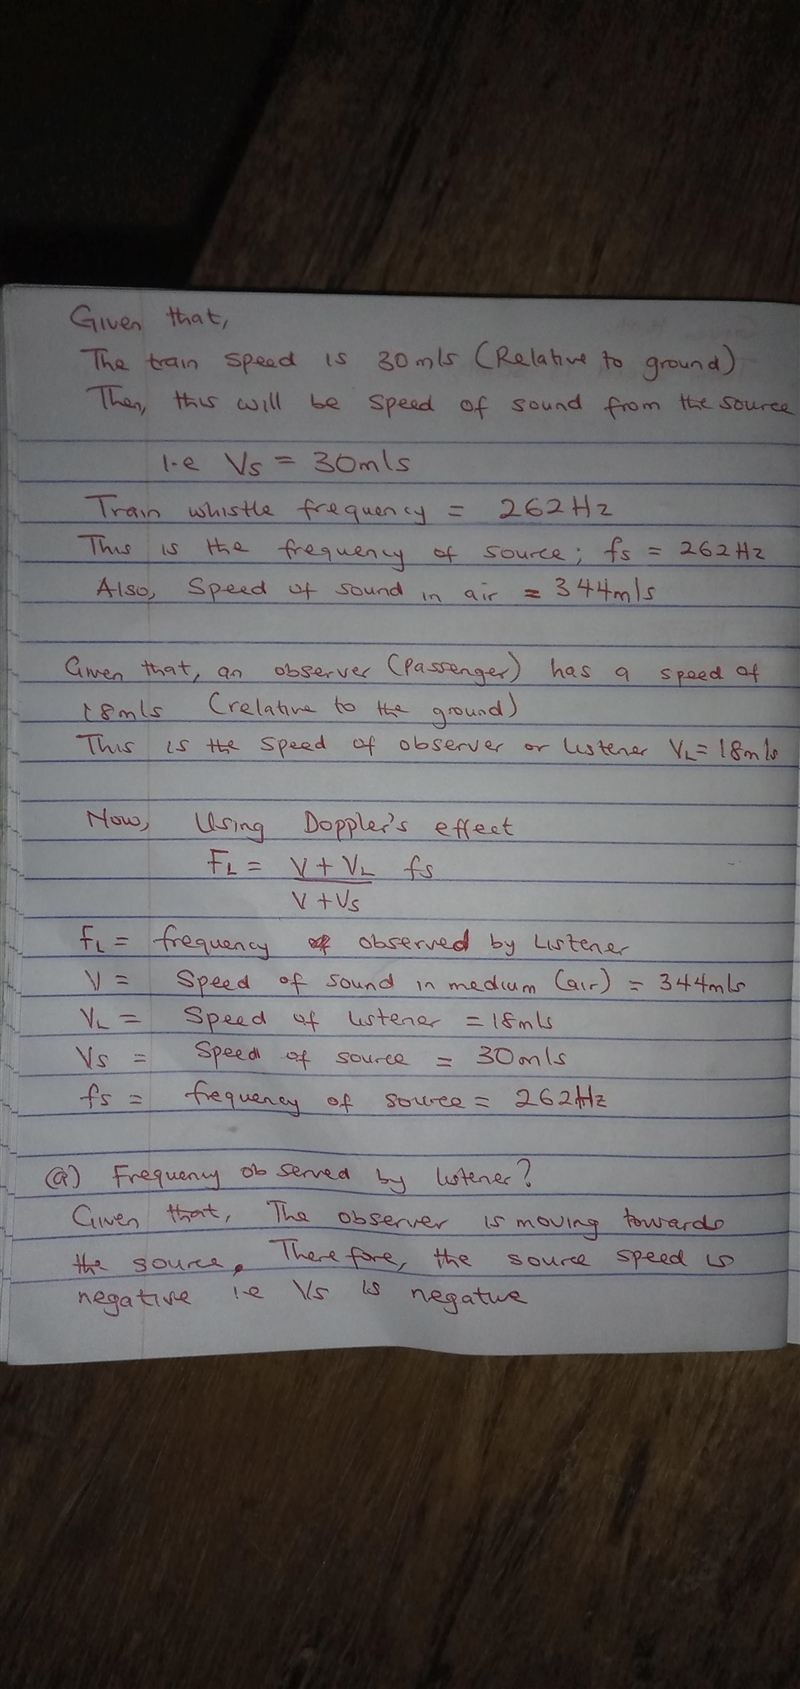 Given that,
The train speed is 30m/s (Relative to ground)
Then, this will be speed of sound from the source
i.e Vs = 30m/s
Train whistle frequency = 262Hz
This is the frequency of source; fs = 262Hz
Also, Speed of sound in air = 344m/s
Given that, an observer (Passenger) has a speed of
18m/s (relative to the ground)
This is the speed of observer or listener VL = 18m/s
Now, Using Doppler's effect
FL = V + VL fs
V + Vs
FL = frequency of observed by Listener
V = Speed of sound in medium (air) = 344m/s
VL = Speed of listener = 18m/s
Vs = Speed of source = 30m/s
fs = frequency of source = 262Hz
(a) Frequency observed by listener?
Given that, The observer is moving towards
the source. Therefore, the source speed is
negative i.e Vs is negative